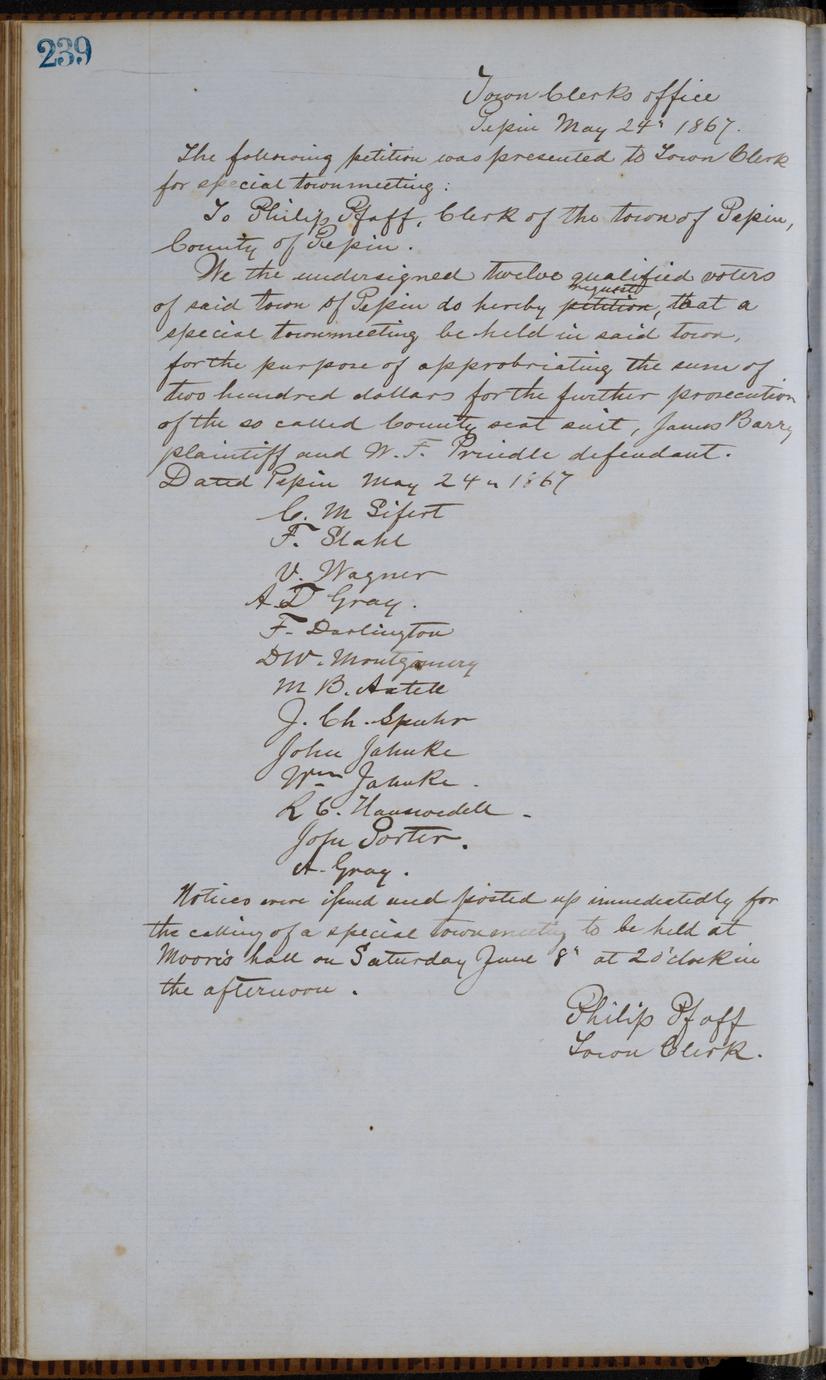 239
Town Clerks office
Pepin May 24" 1867.
The following petition was presented to Town Clerk
for special townmeeting:
To Philip Pfaff, Clerk of the town of Pepin,
County of Pepin.
We the undersigned twelve qualified voters
request
of said town of Pepin do hereby petition, that a
special townmeeting be held in said town,
for the purpose of approbriating the sum of
two hundred dollars for the further prosecution
of the so called County seat suit, James Barry
plaintiff and W. F. Prindle defendant.
Dated Pepin May 24" 1867
C. M Sifert
F. Stahl
V. Wagner
A. D Gray.
F. Darlington
DW. Montgomery
M B. Axtell
J. Ch. Spuhr
John Jahnke
Wm Jahnke.
L C. Hauswedell.
John Porter.
A. Gray.
Notices were issued and posted up immedeatedly for
the calling of a special townmeeting to be held at
Moore's hall on Saturday June 8" at 2 o'clock in
the afternoon.
Philip Pfaff
Town Clerk.